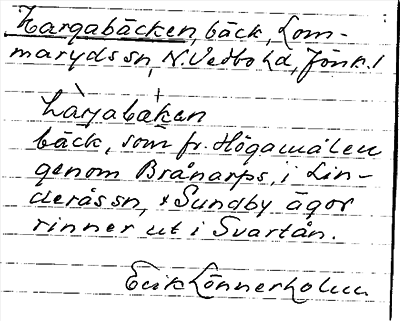 Largabäcken, bäck, Lom-
maryds sn, N. Vedbo hd, Jönk. l
+
bäck, som fr. Högamålen
genom Brånarps, i Lin-
derås sn, & Sundby ägor
rinner ut i Svartån.
Erik Lönnerholm